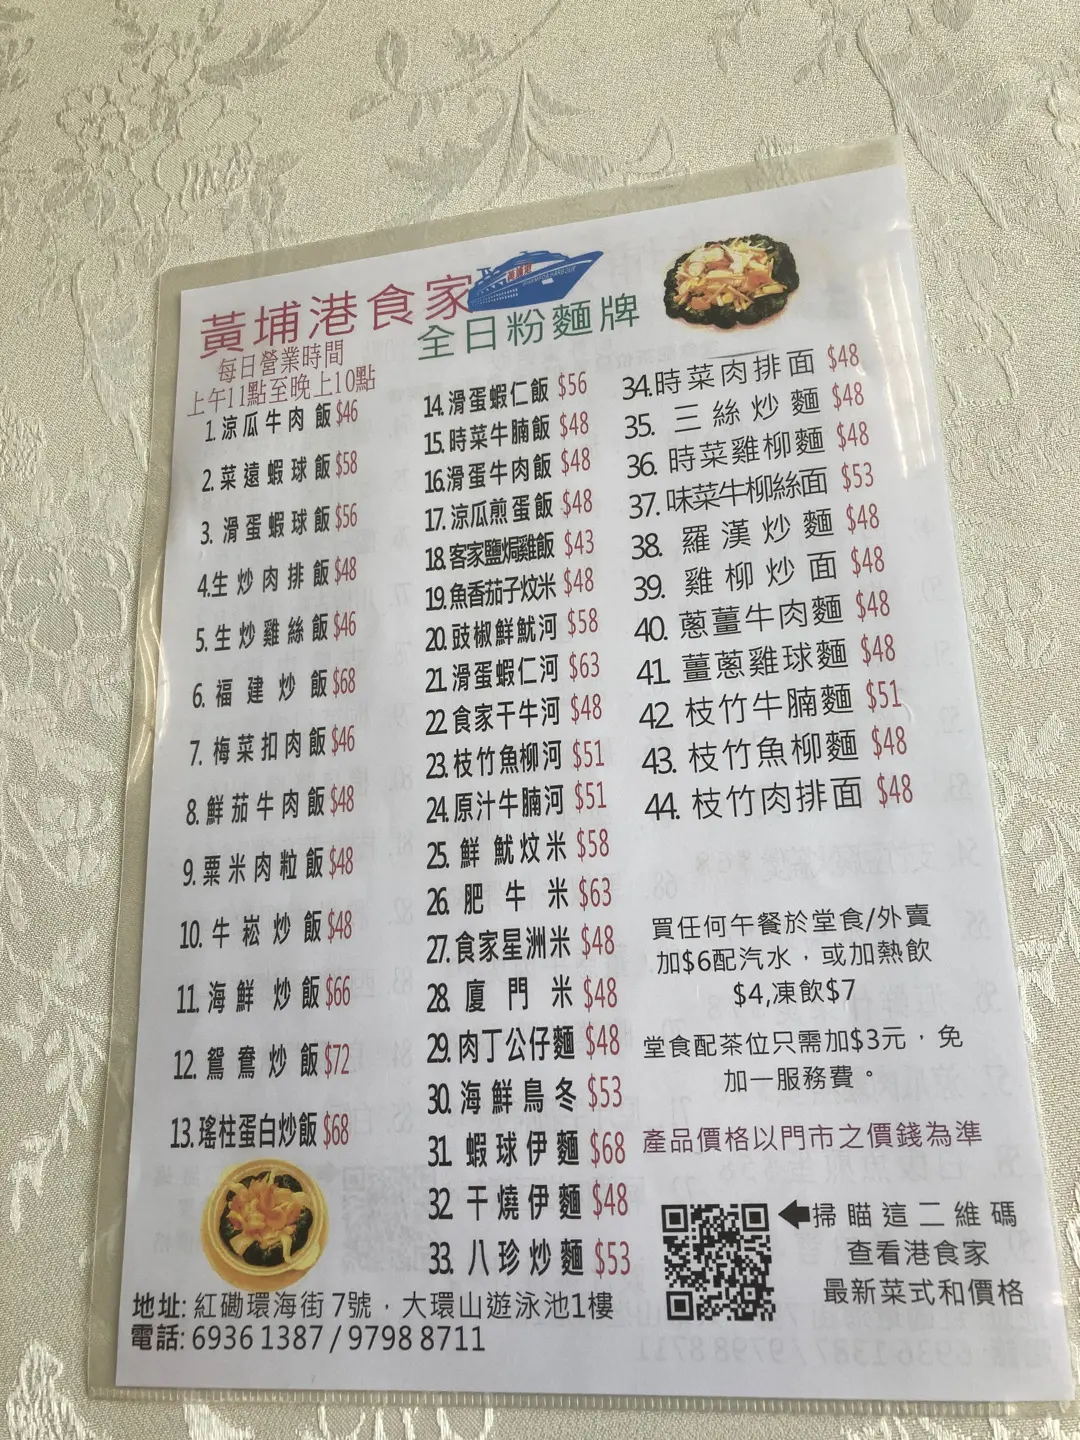 黃埔港食家
全日粉麵牌
每日營業時間
上午11點至晚上10點
1.涼瓜牛肉飯$46
2.菜遠蝦球飯$58
3.滑蛋蝦球飯$56
4.生炒肉排飯$48
5.生炒雞絲飯$46
6.福建炒飯$68
7.梅菜扣肉飯$46
8.鮮茄牛肉飯$48
9.粟米肉粒飯$48
10.牛崧炒飯$48
11.海鮮炒飯$66
12.鴛鴦炒飯$72
13.瑤柱蛋白炒飯$68
14.滑蛋蝦仁飯 $56
15.時菜牛腩飯 $48
16.滑蛋牛肉飯 $48
17.涼瓜煎蛋飯 $48
18.客家鹽焗雞飯 $43
19.魚香茄子炆米 $48
20.豉椒鮮魷河 $58
21.滑蛋蝦仁河 $63
22.食家干牛河 $48
23.枝竹魚柳河 $51
24.原汁牛腩河 $51
25.鮮魷炆米 $58
26.肥牛米 $63
27.食家星洲米 $48
28.廈門米 $48
29.肉丁公仔麵 $48
30.海鮮鳥冬 $53
31.蝦球伊麵 $68
32.干燒伊麵 $48
33.八珍炒麵 $53
34.時菜肉排面 $48
35.三絲炒麵 $48
36.時菜雞柳麵 $48
37.味菜牛柳絲面 $53
38.羅漢炒麵 $48
39.雞柳炒面 $48
40.蔥薑牛肉麵 $48
41.薑蔥雞球麵 $48
42.枝竹牛腩麵 $51
43.枝竹魚柳麵 $48
44.枝竹肉排面 $48
買任何午餐於堂食/外賣
加$6配汽水，或加熱飲
$4,凍飲$7
堂食配茶位只需加$3元，免
加一服務費。
產品價格以門市之價錢為準
掃瞄這二維碼
查看港食家
最新菜式和價格
地址: 紅磡環海街7號，大環山遊泳池1樓
電話: 6936 1387 / 9798 8711